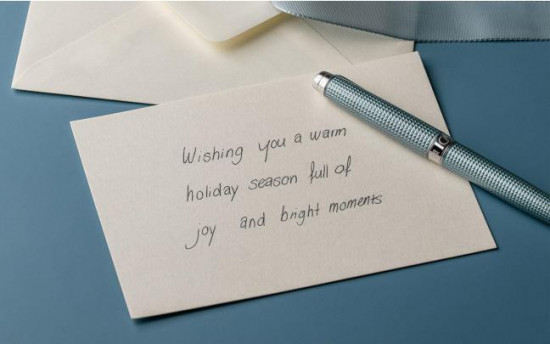 Wishing you a warm
holiday season full of
joy and bright moments